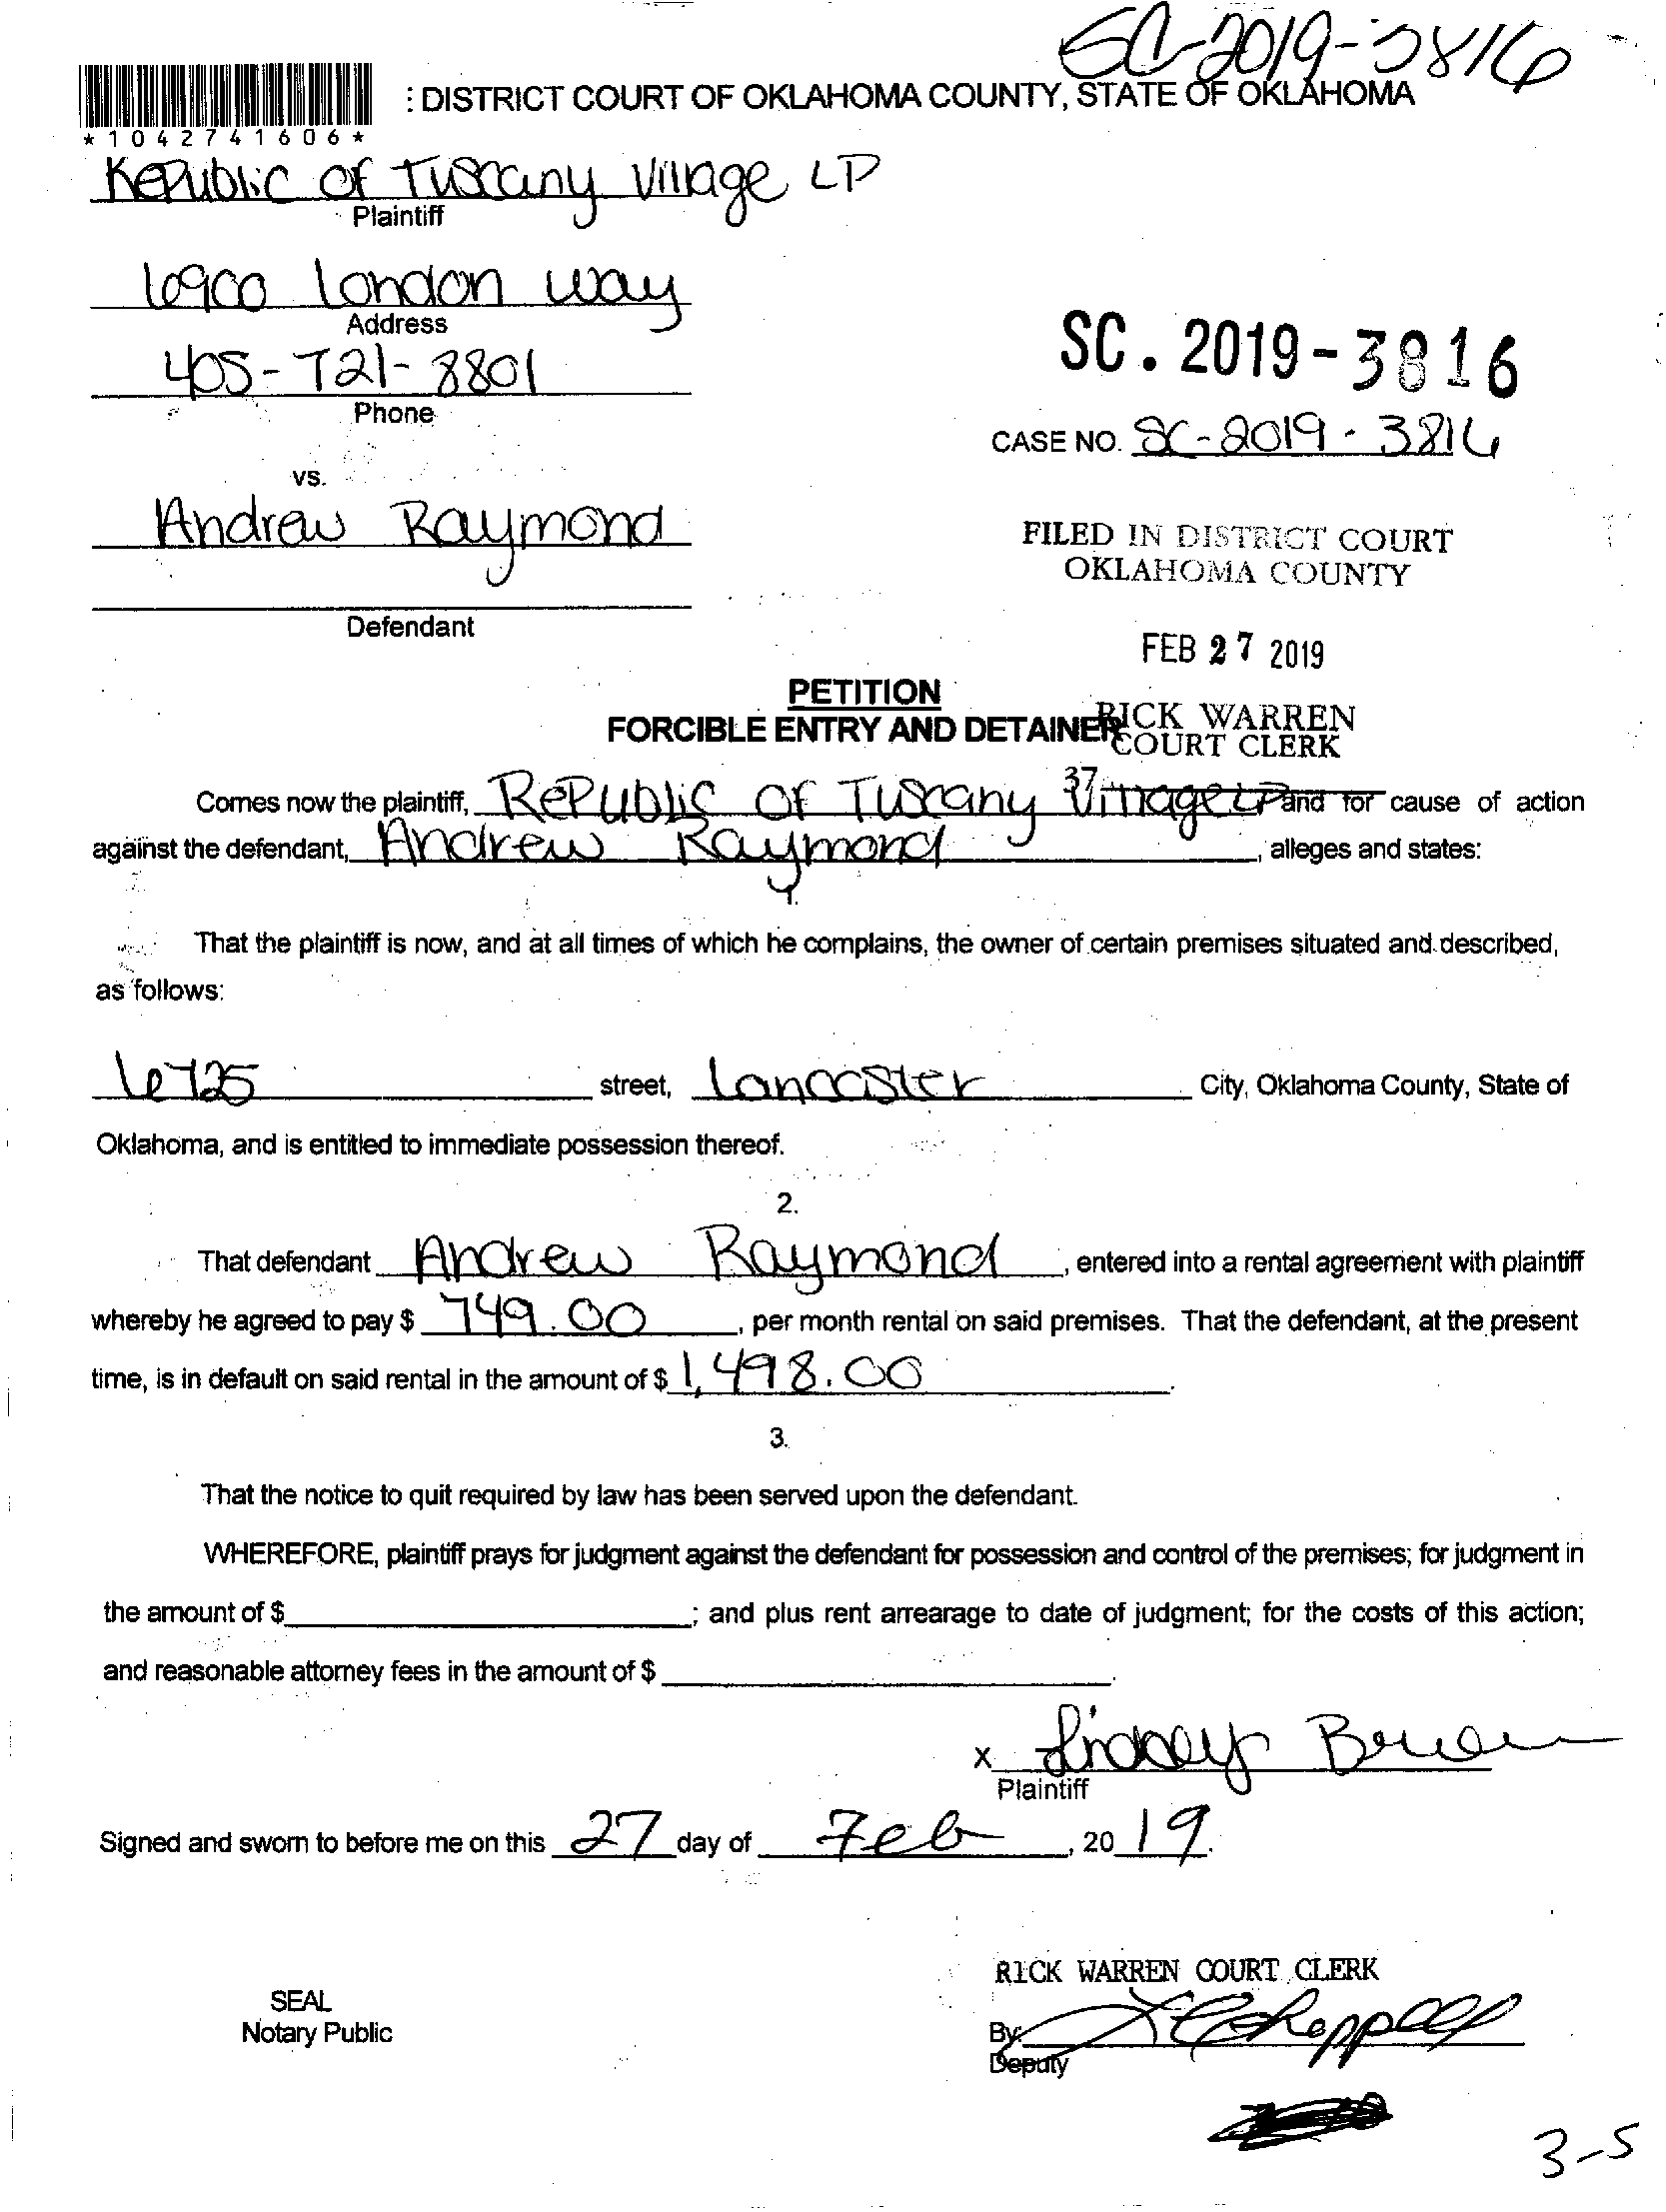 SC-2019-3816
: DISTRICT COURT OF OKLAHOMA COUNTY, STATE OF OKLAHOMA
*1042741606*
Republic of Tuscany Village LP
Plaintiff
6900 London Way
Address
405-721-8801
Phone
SC. 2019-3816
CASE NO. SC-2019-3816
vs.
Andrew Raymond
FILED IN DISTRICT COURT
OKLAHOMA COUNTY
Defendant
FEB 27 2019
PETITION
RICK WARREN
FORCIBLE ENTRY AND DETAINER
COURT CLERK
37
Comes now the plaintiff, Republic of Tuscany Village LP and for cause of action
against the defendant, Andrew Raymond, alleges and states:
1.
That the plaintiff is now, and at all times of which he complains, the owner of certain premises situated and described,
as follows:
6725 street, Lancaster City, Oklahoma County, State of
Oklahoma, and is entitled to immediate possession thereof.
2.
That defendant Andrew Raymond, entered into a rental agreement with plaintiff
whereby he agreed to pay $ 749.00, per month rental on said premises. That the defendant, at the present
time, is in default on said rental in the amount of $ 1,498.00.
3.
That the notice to quit required by law has been served upon the defendant.
WHEREFORE, plaintiff prays for judgment against the defendant for possession and control of the premises; for judgment in
the amount of $; and plus rent arrearage to date of judgment; for the costs of this action;
and reasonable attorney fees in the amount of $.
x Lindsey
Plaintiff
Signed and sworn to before me on this 27 day of Feb, 20 19.
RICK WARREN COURT CLERK
SEAL
Notary Public
By:
Deputy
3-5